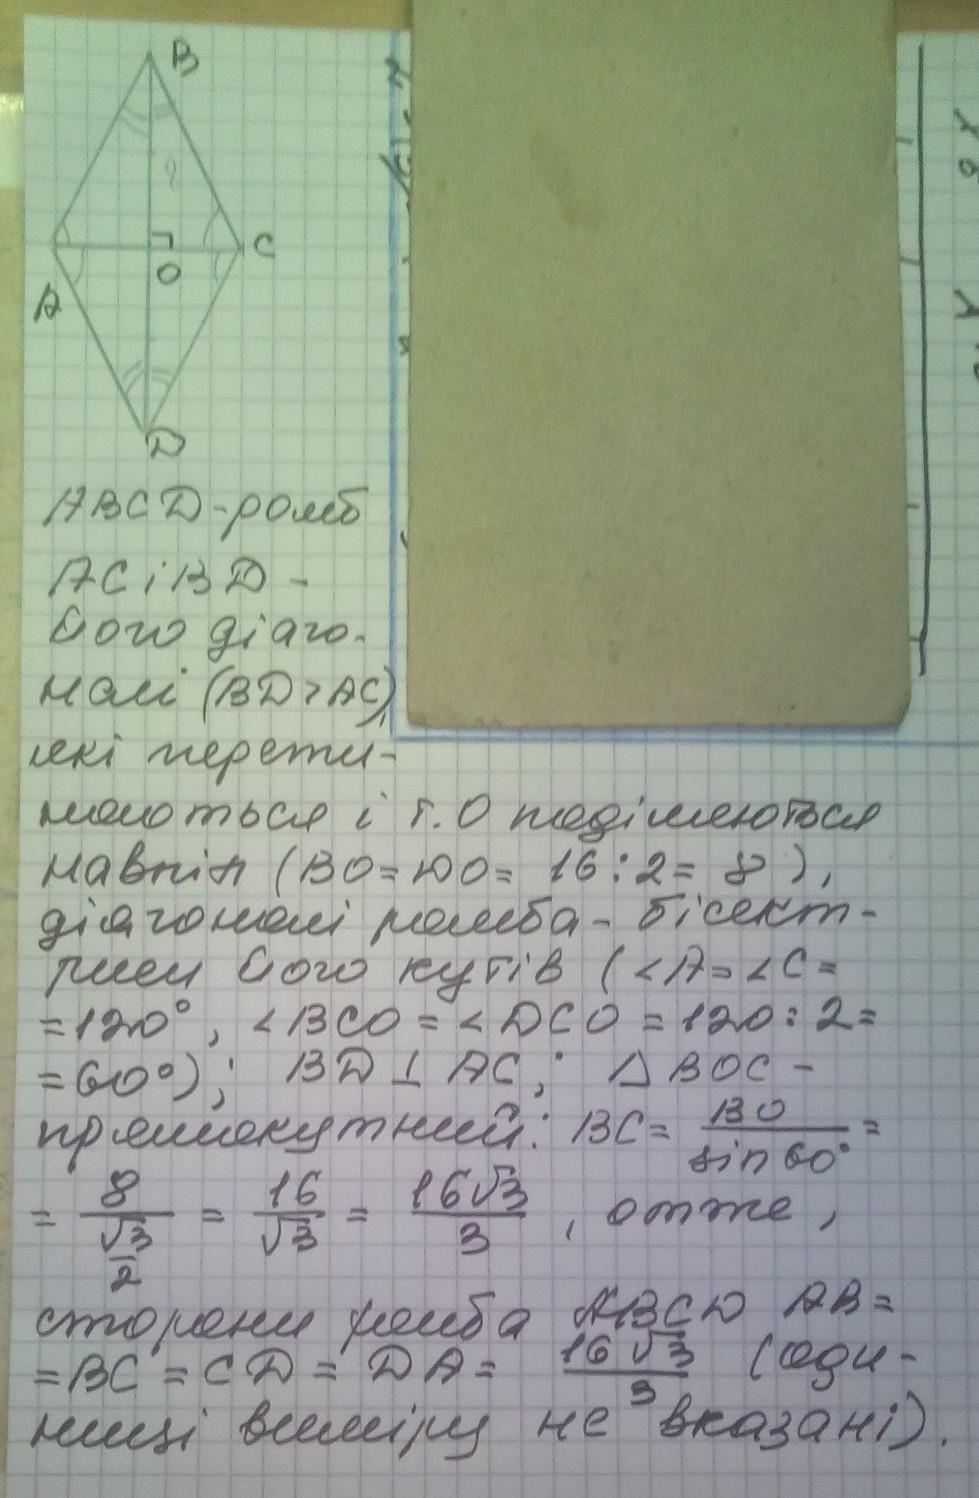 B
C
O
A
D
ABCD-ромб
AC і BD -
його діаго-
налі (BD>AC),
які перети-
наються і т. О поділяються
навпіл (BO=DO= 16:2= 8),
діагоналі ромба - бісект-
риси його кутів (∠A=∠C=
=120°, ∠BCO=∠DCO=120:2=
=60°); BD⊥AC; △BOC -
прямокутний: BC= BO/sin60° =
= 8/(√3/2) = 16/√3 = 16√3/3, отже,
сторони ромба ABCD AB=
=BC=CD=DA= 16√3/3 (оди-
ниці виміру не вказані).